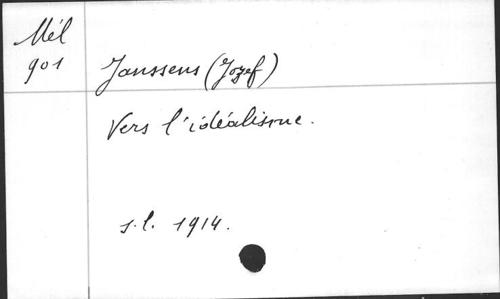 Mél
901
Janssens (Jozef)
Vers l'idéalisme.
s.l. 1914.